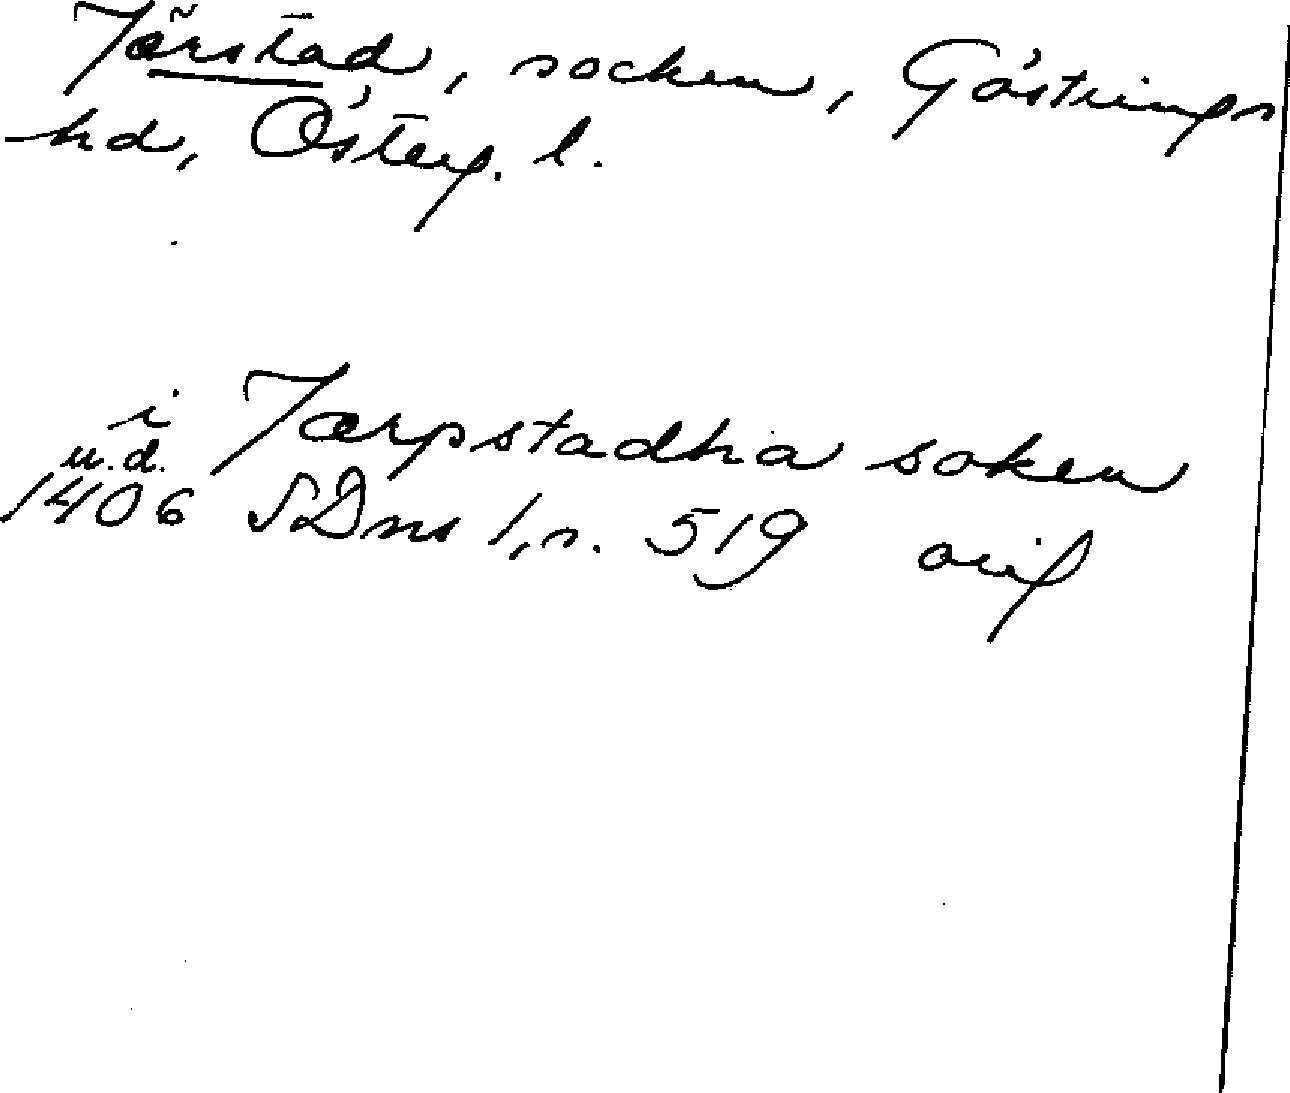 Järstad, socken, Göstrings
hd, Österg. l.
i Jærpstadha soken
u.d.
1406 SDns 1, s. 519 orig